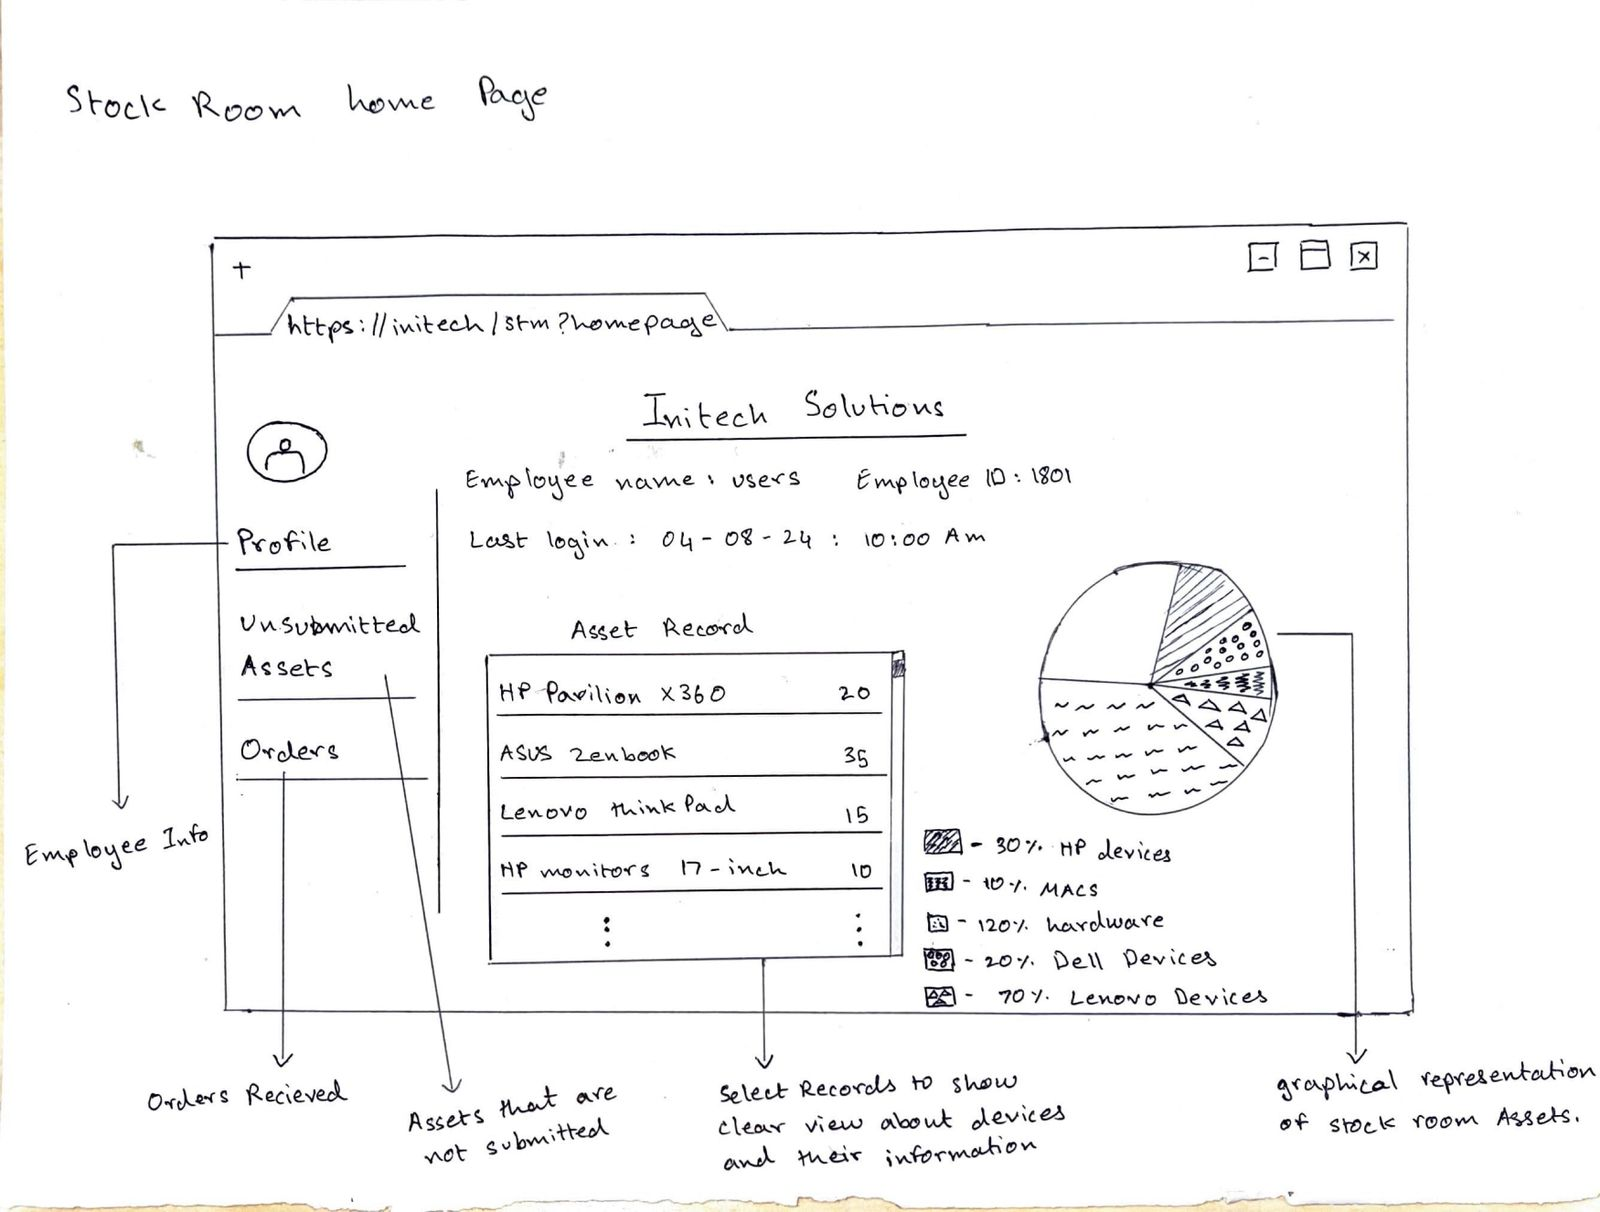 Stock Room home Page
+
https://initech/stm?homepage
Initech Solutions
Employee name: users Employee ID: 1801
Last login : 04-08-24 : 10:00 Am
Profile
Unsubmitted
Assets
Orders
Asset Record
HP Pavilion x360 20
ASUS Zenbook 35
Lenovo thinkPad 15
HP monitors 17-inch 10
- 30% HP devices
- 10% MACS
- 120% hardware
- 20% Dell Devices
- 70% Lenovo Devices
Employee Info
Orders Recieved
Assets that are
not submitted
Select Records to show
clear view about devices
and their information
graphical representation
of stock room Assets.